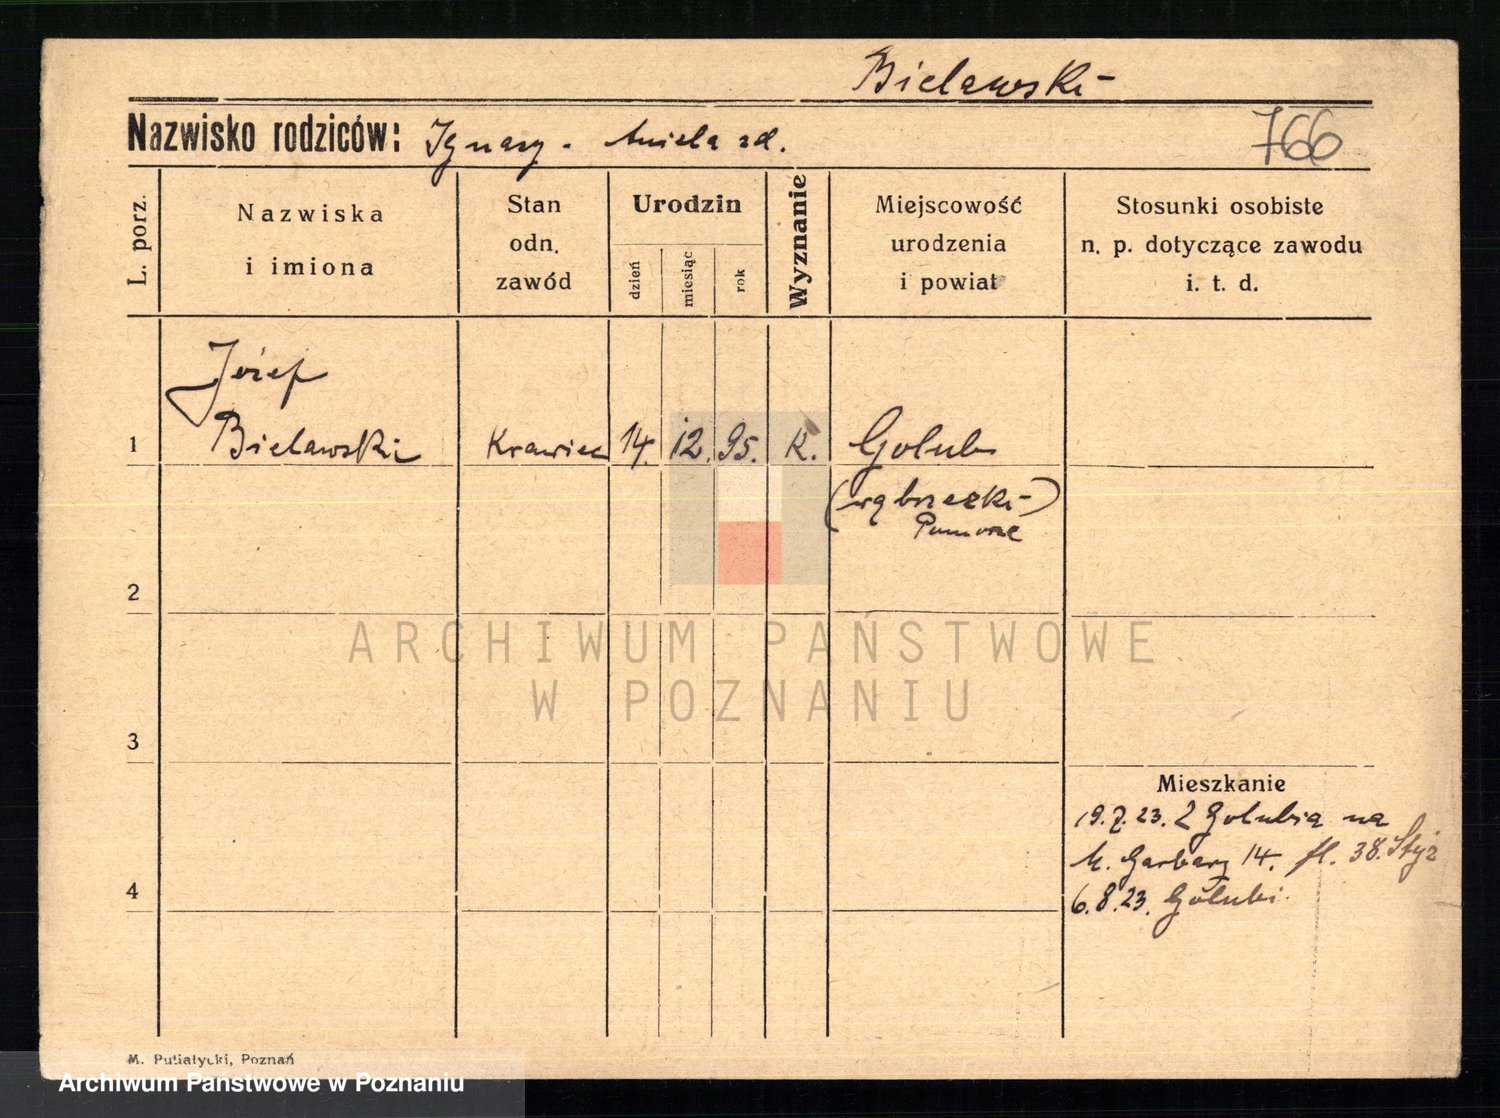 Bielawski
Nazwisko rodziców: Ignacy - Aniela zd.
766
L. porz.
Nazwiska
i imiona
Stan
odn.
zawód
Urodzin
dzień
miesiąc
rok
Wyznanie
Miejscowość
urodzenia
i powiat
Stosunki osobiste
n. p. dotyczące zawodu
i. t. d.
Józef
1 Bielawski Krawiec 14. 12. 95. K. Golub
(wąbrzeski)
Pomorze
2
ARCHIWUM PAŃSTWOWE
W POZNANIU
3
Mieszkanie
19.7.23. Z Golubia na
M. Garbary 14. fl. 38.
4
6.8.23. Golubi.
M. Putiatycki, Poznań
Archiwum Państwowe w Poznaniu